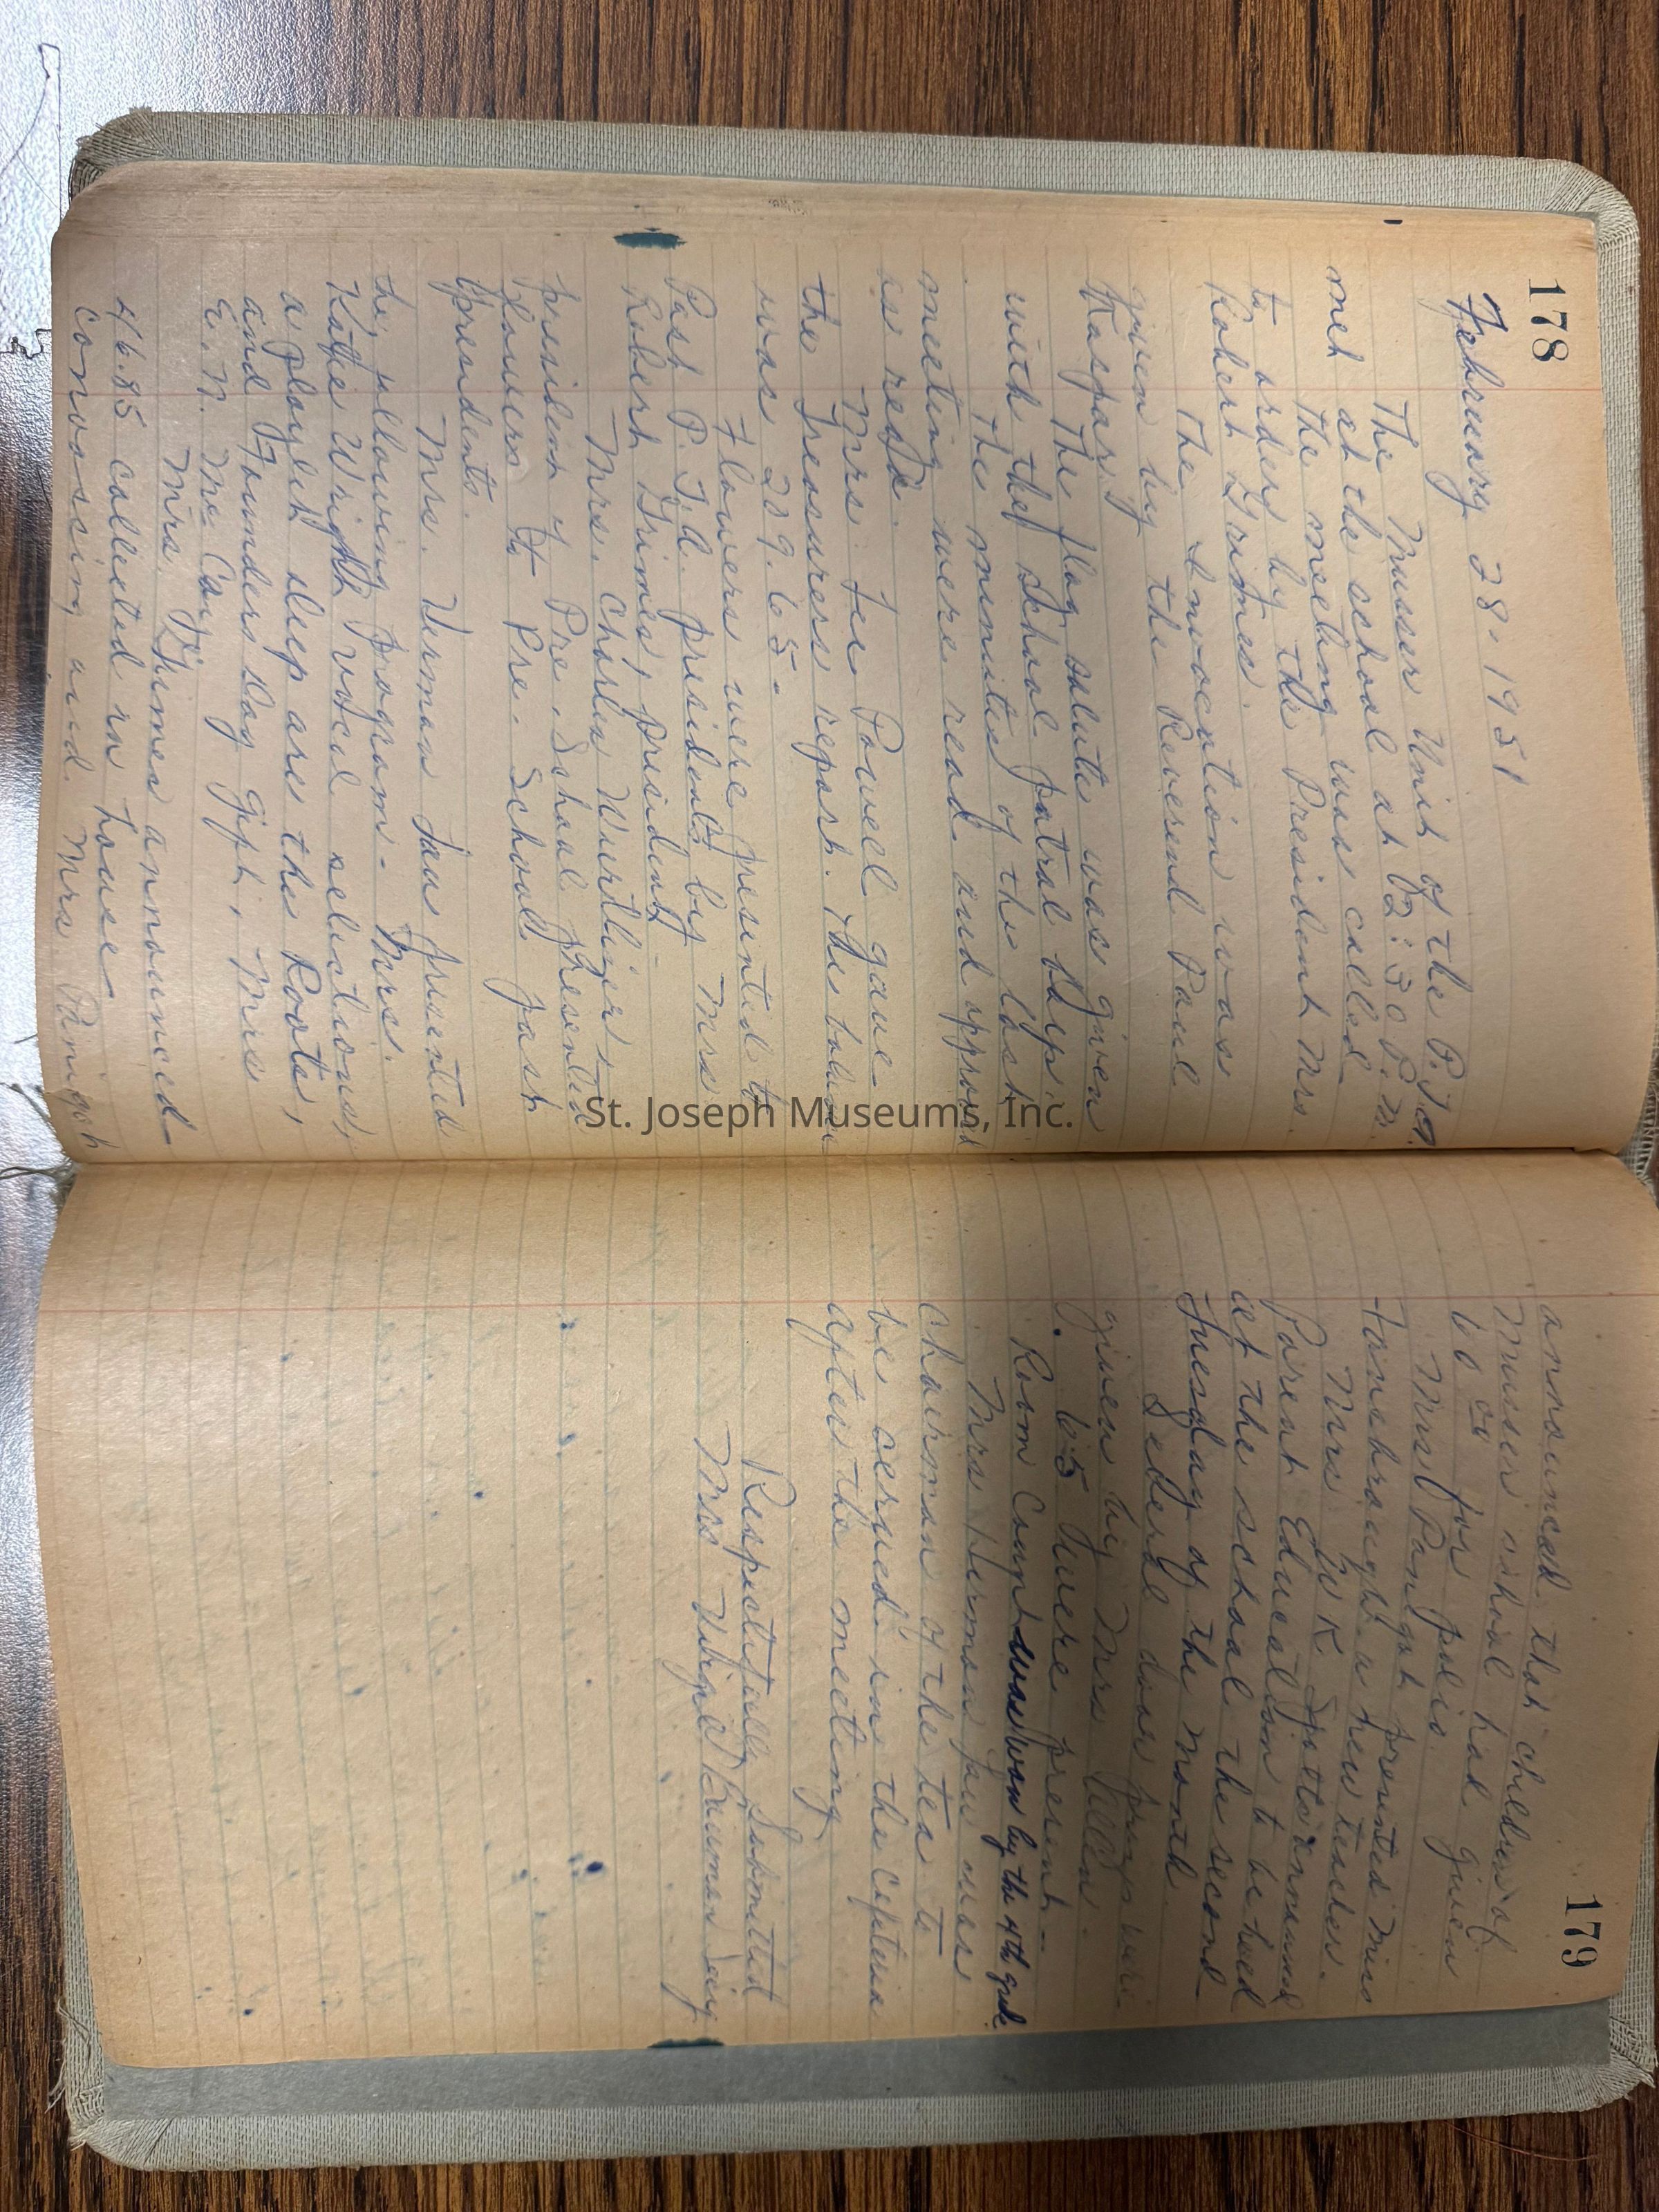 178
February 28, 1951
The Musser Unit of the P.T.A.
met at the school at 2:30 P.M.
The meeting was called
to order by the President Mrs.
Robert Grimes.
The Invocation was
given by the Reverend Paul
Kaspar.
The flag salute was given
with the School patrol boys.
The minutes of the last
meeting were read and approved
as read.
Mrs. Lee Powell gave
the Treasurers report. The balance
was 209.65.
Flowers were presented to
Past P.T.A. presidents by Mrs
Robert Grimes, president
Mrs. Charles
president of Pre. School presented
flowers to Pre. School past
presidents.
Mrs. Herman Jau presented
the following program. Mrs.
Kathe Wright vocal selections,
a playlet deep are the Roots,
and Founders Day gift, Mrs
E. N. Mc Coy
Mrs. Grimes announced
46.85 collected in house
canvassing and Mrs.
St. Joseph Museums, Inc.
179
announced that children of
Musser school had given
60 00 for polio.
Miss presented Miss
a new teacher.
Mrs K
Parent Education to be held
at the school the second
Tuesday of the month.
Several door prizes were
given by Mrs Allen.
65 were present
Room Count was won by the 4th grade.
Mrs Herman Jau was
chairman of the tea to
be served in the Cafeteria
after the meeting
Respectfully Submitted
Mrs Virgil Bauman Secy